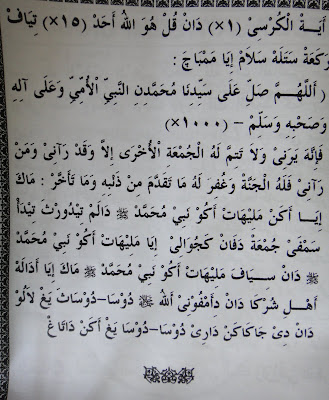 اَيَةْ الْكُرْسِىْ (١×) دَانْ قُلْ هُوَ اللهُ اَحَدْ (١٥×) تِيَافْ
رَكْعَةْ سَتَلَهْ سَلَامْ اِيَا مَمْبَاچَ :
( اَللّٰهُمَّ صَلِّ عَلَى سَيِّدِنَا مُحَمَّدِنِ النَّبِيِّ الْاُمِّيِّ وَعَلَى آلِهِ
وَصَحْبِهِ وَسَلِّمْ – (١٠٠٠×)
فَاِنَّهُ يَرَنِىْ وَلَا تَتِمُّ لَهُ الْجُمْعَةُ الْاُخْرَى اِلَّا وَقَدْ رَآنِىْ وَمَنْ
رَآنِىْ فَلَهُ الْجَنَّةُ وَغُفِرَ لَهُ مَا تَقَدَّمَ مِنْ ذَنْبِهِ وَمَا تَأَخَّرَ : مَاكَ
اِيَا اَكَنْ مَلِيْهَاتْ اَكُوْ نَبِيْ مُحَمَّدْ ﷺ دَالَمْ تِيْدُوْرَثْ تِيْدَأْ
سَمْفَىْ جُمْعَةْ دَفَانْ كَچُوَالِىْ اِيَا مَلِيْهَاتْ اَكُوْ نَبِيْ مُحَمَّدْ
ﷺ دَانْ سِيَافَ مَلِيْهَاتْ اَكُوْ نَبِيْ مُحَمَّدْ ﷺ مَاكَ اِيَا اَدَالَهْ
اَهْلِ شُرْكَا دَانْ دِامْفُوْنِىْ اَللهُ ﷺ دَوْسَا-دَوْسَاثْ يَغْ لَالُوْ
دَانْ دِىْ جَاكَاكَنْ دَارِىْ دَوْسَا-دَوْسَا يَغْ اَكَنْ دَاتَاغْ